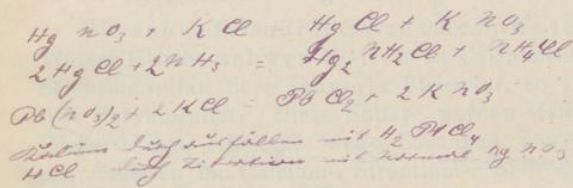 Hg NO3 + K Cl = Hg Cl + K NO3
2 Hg Cl + 2 NH3 = Hg2 NH2 Cl + NH4 Cl
Pb (NO3)2 + 2 K Cl = Pb Cl2 + 2 K NO3
Kalium durch ausfällen mit H2 Pt Cl4
H Cl durch Titration mit normal Ag NO3